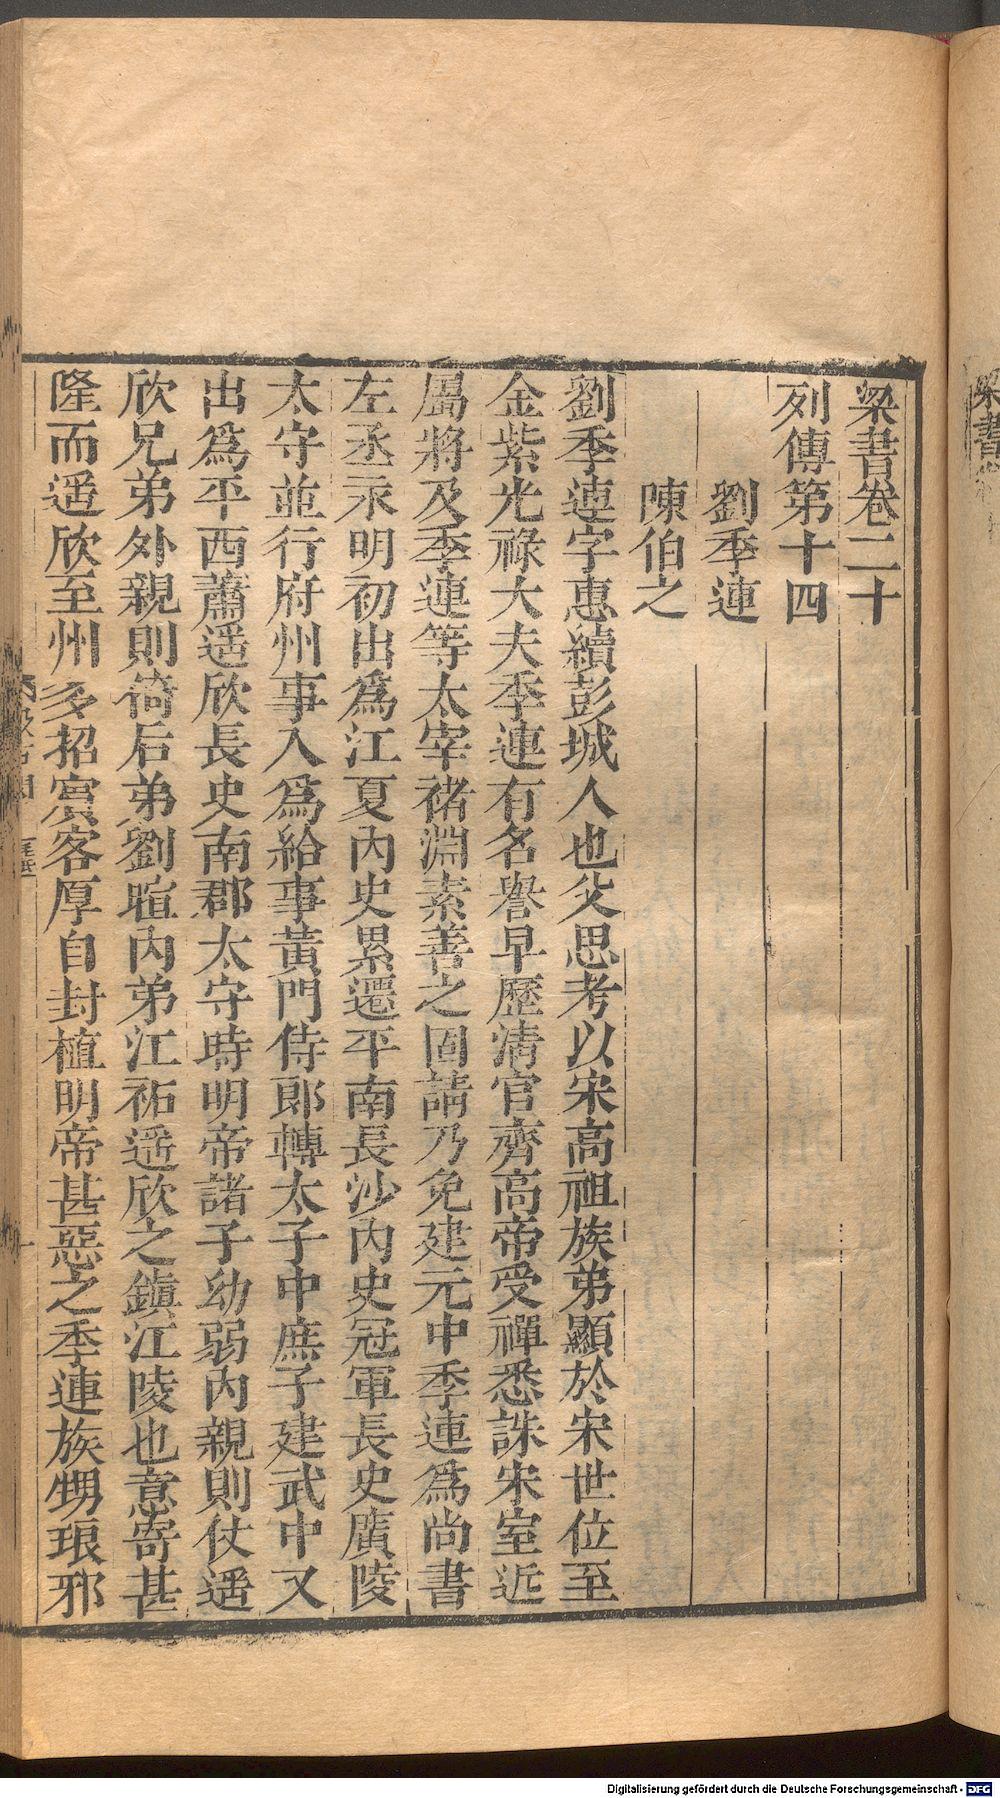 梁書卷二十
列傳第十四
劉季連
陳伯之
劉季連字惠續彭城人也父思考以宋高祖族弟顯於宋世位至
金紫光祿大夫季連有名譽早歷淸官齊高帝受禪悉誅宋室近
屬將及季連等太宰禇淵素善之固請乃免建元中季連爲尚書
左丞永明初出爲江夏內史累遷平南長沙內史冠軍長史廣陵
太守並行府州事入爲給事黃門侍郎轉太子中庶子建武中又
出爲平西蕭遥欣長史南郡太守時明帝諸子幼弱內親則仗遥
欣兄弟外親則倚后弟劉暄內弟江祏遥欣之鎮江陵也意寄甚
隆而遥欣至州多招賔客厚自封植明帝甚惡之季連族甥琅邪
梁書
Digitalisierung gefördert durch die Deutsche Forschungsgemeinschaft - DFG